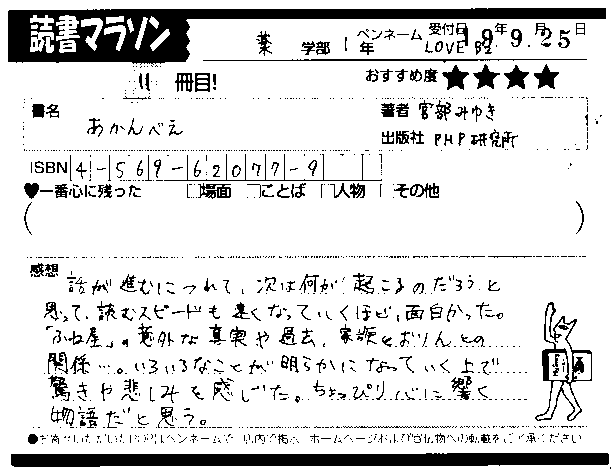 読書マラソン
薬 学部 1年 ペンネーム LOVE B2 受付日 19年9月25日
11 冊目! おすすめ度 ★★★★
書名 あかんべえ
著者 宮部みゆき
出版社 PHP研究所
ISBN 4-569-62077-9
♥一番心に残った □場面 □ことば □人物 □その他
感想 話が進むにつれて、次は何が起こるのだろうと
思って、読むスピードも速くなっていくほど、面白かった。
「ふね屋」の意外な真実や過去、家族とおりんとの
関係…。いろいろなことが明らかになっていく上で
驚きや悲しみを感じた。ちょっぴり心に響く
物語だと思う。
ホームページおよび宣伝物への転載をご了承ください